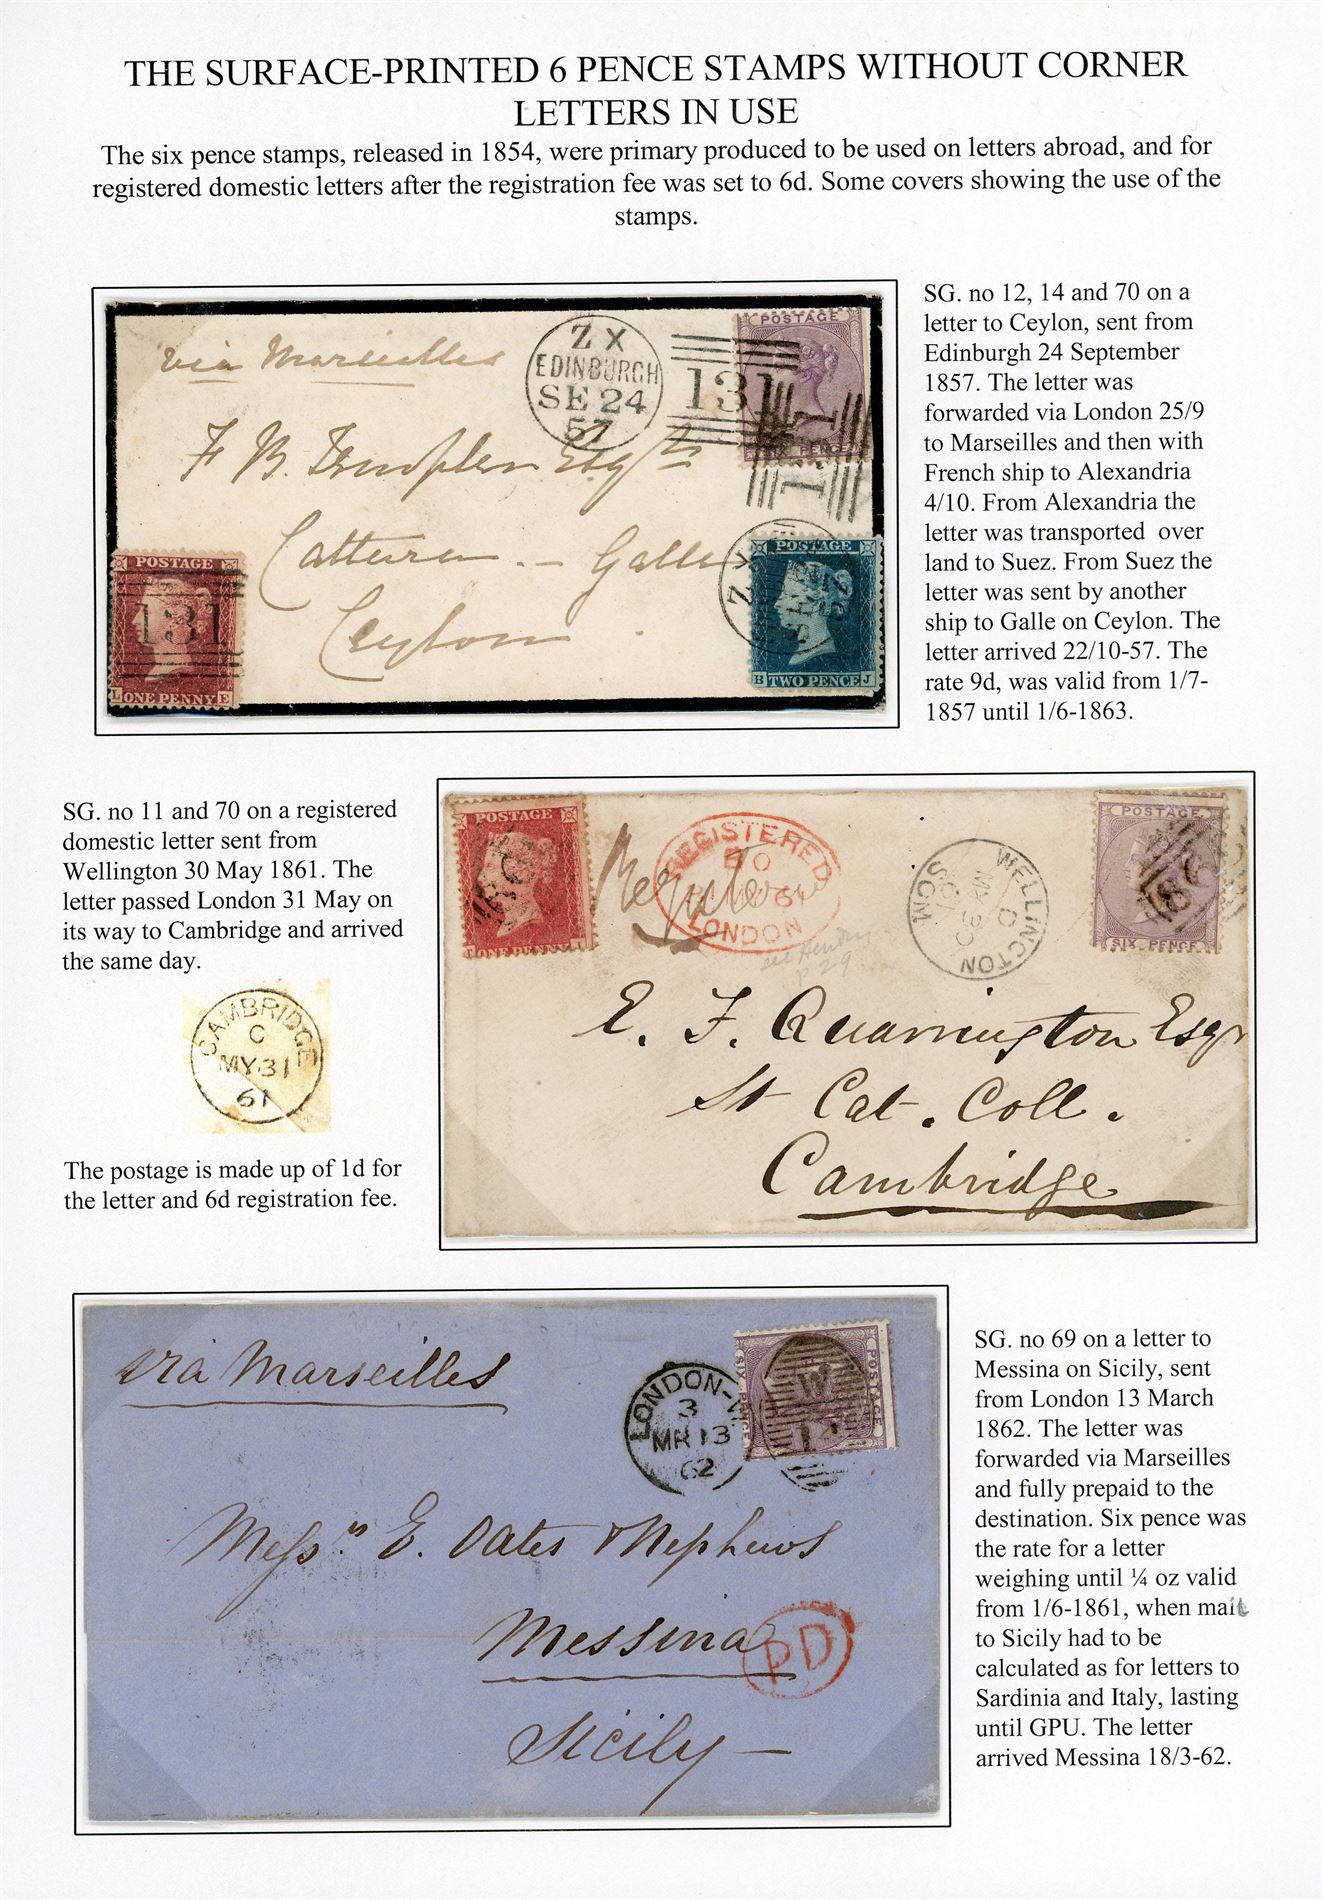 THE SURFACE-PRINTED 6 PENCE STAMPS WITHOUT CORNER
LETTERS IN USE
The six pence stamps, released in 1854, were primary produced to be used on letters abroad, and for
registered domestic letters after the registration fee was set to 6d. Some covers showing the use of the
stamps.
via Marseilles
Z X
EDINBURGH
SE 24
57
131
POSTAGE
SIX PENCE
131
F B
Galle
Ceylon
POSTAGE
131
L ONE PENNY E
Z X
POSTAGE
B TWO PENCE J
SG. no 12, 14 and 70 on a
letter to Ceylon, sent from
Edinburgh 24 September
1857. The letter was
forwarded via London 25/9
to Marseilles and then with
French ship to Alexandria
4/10. From Alexandria the
letter was transported over
land to Suez. From Suez the
letter was sent by another
ship to Galle on Ceylon. The
letter arrived 22/10-57. The
rate 9d, was valid from 1/7-
1857 until 1/6-1863.
SG. no 11 and 70 on a registered
domestic letter sent from
Wellington 30 May 1861. The
letter passed London 31 May on
its way to Cambridge and arrived
the same day.
CAMBRIDGE
C
MY 31
61
The postage is made up of 1d for
the letter and 6d registration fee.
POSTAGE
ONE PENNY
REGISTERED
61
LONDON
see Hendry
p 29
WELLINGTON
C
MY 30
SOM
POSTAGE
SIX PENCE
E. F. Quarrington Esqr
St Cat. Coll.
Cambridge
via Marseilles
LONDON-W
3
MR 13
62
SIX PENCE
POSTAGE
W
Messrs E. Oates & Nephews
Messina
PD
Sicily
SG. no 69 on a letter to
Messina on Sicily, sent
from London 13 March
1862. The letter was
forwarded via Marseilles
and fully prepaid to the
destination. Six pence was
the rate for a letter
weighing until ¼ oz valid
from 1/6-1861, when mail
to Sicily had to be
calculated as for letters to
Sardinia and Italy, lasting
until GPU. The letter
arrived Messina 18/3-62.